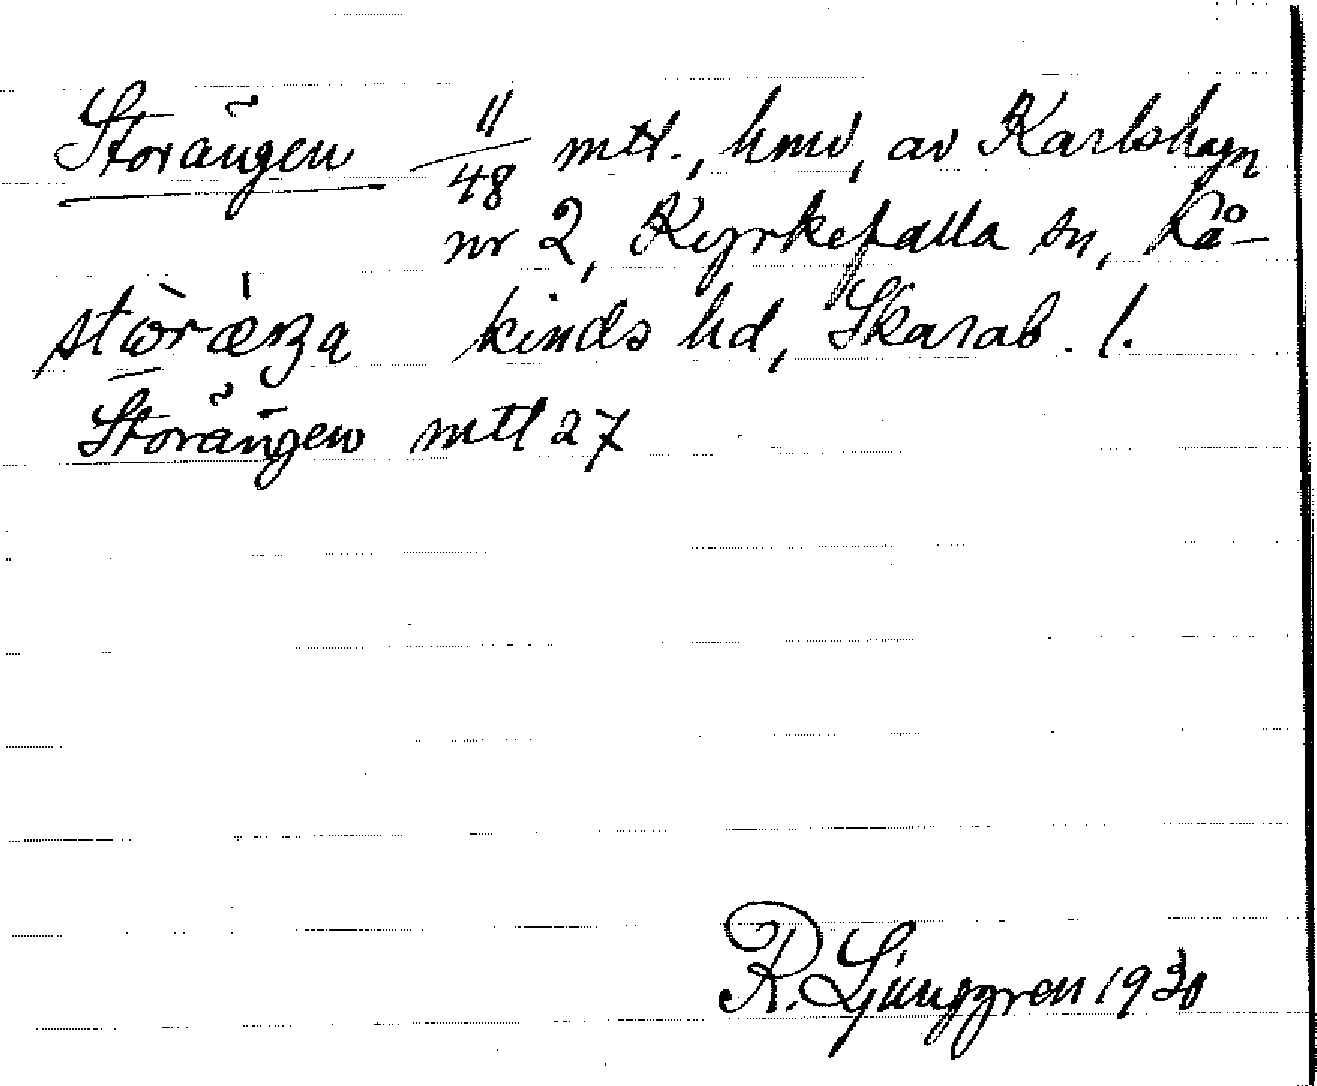 Storängen 11/48 mtl., hmd, av Karlshagen
nr 2, Kyrkefalla sn, Kå-
kinds hd, Skarab. l.
Storängen mtl 27
R. Ljunggren 1930